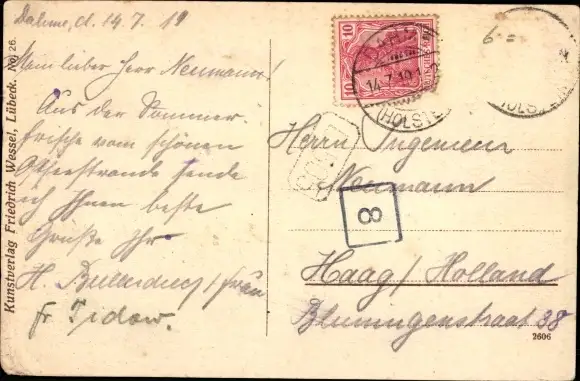 Dahme, d. 14.7.19
Mein lieber Herr Neumann!
Aus der Sommer-
frische vom schönen
Ostseestrande sende
ich Ihnen beste
Grüße Ihr
H. / Frau
fr Tidow.
Kunstverlag Friedrich Wessel, Lübeck. No. 26.
10 10
14.7.19
(HOLSTE
HOLSTEIN
6 =
8
Herrn Ingenieur
Neumann
Haag / Holland
Blumingenstraat 38
2606